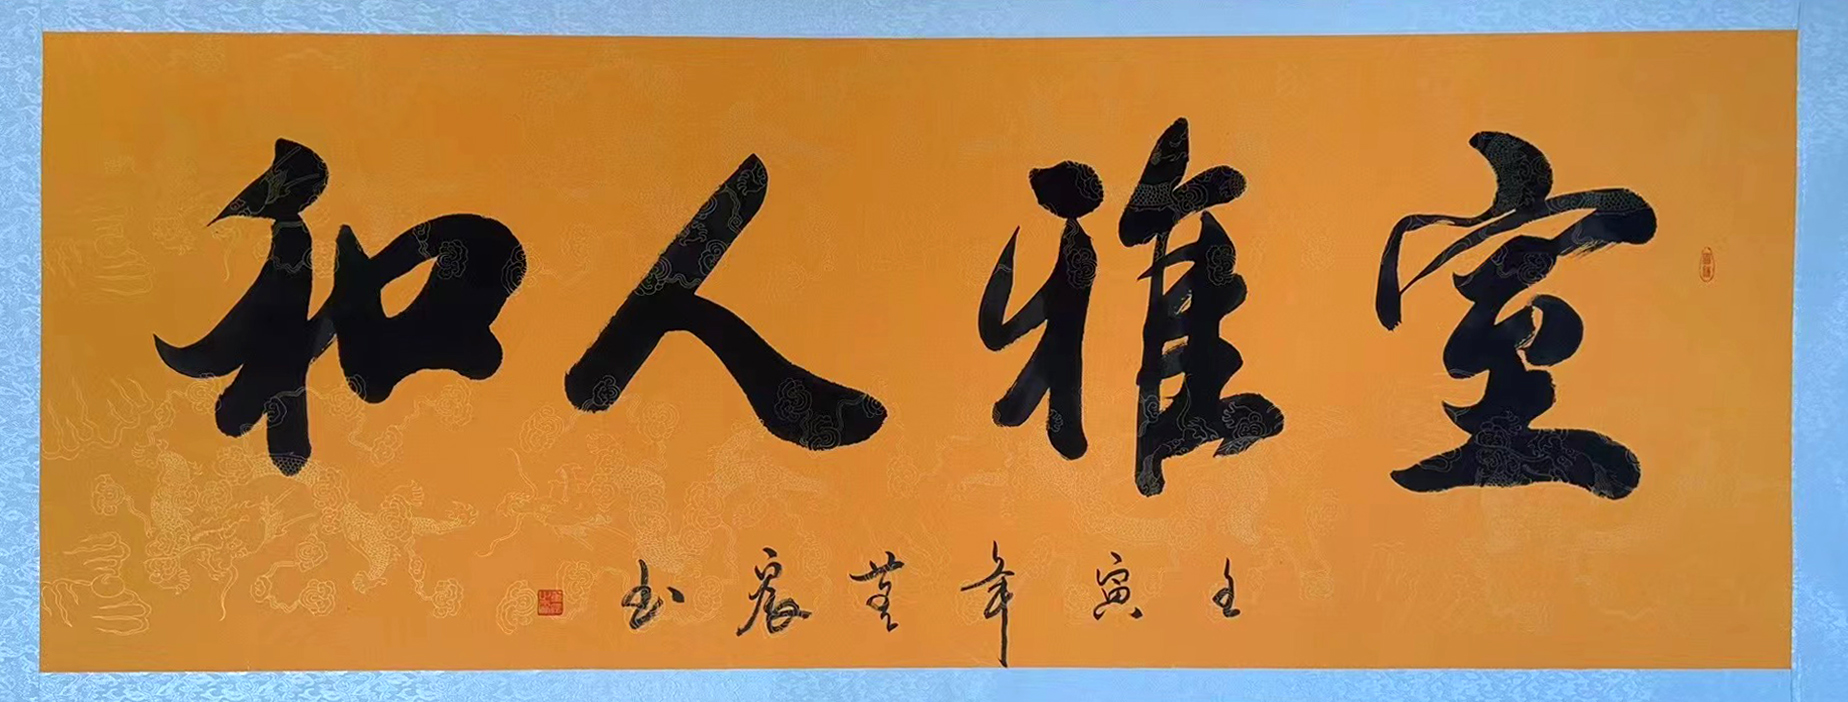 室雅人和
壬寅年
书